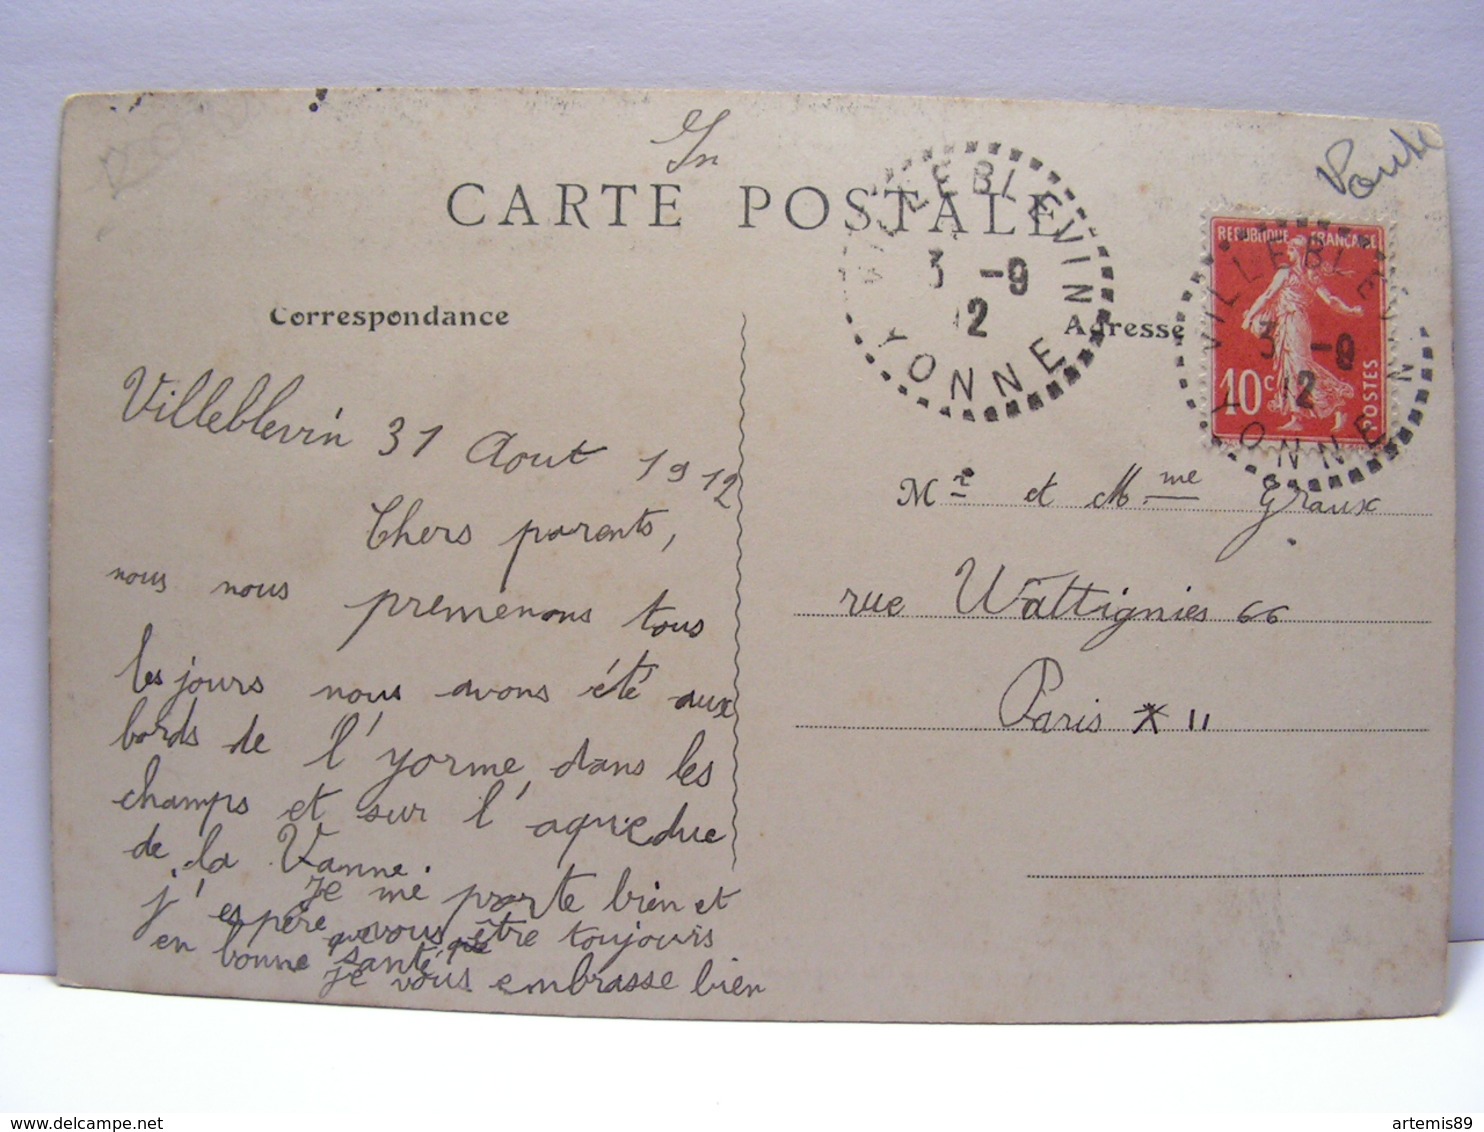 CARTE POSTALE
VILLEBLEVIN
3 -9
12
YONNE
REPUBLIQUE FRANÇAISE
10c
POSTES
VILLEBLEVIN
3 -9
12
YONNE
Correspondance
Adresse
Villeblevin 31 Aout 1912
Chers parents,
nous nous premenons tous
les jours nous avons été aux
bords de l'yorme, dans les
champs et sur l'aqueduc
de la Vanne.
Je me porte bien et
j'espère que vous être toujours
en bonne santé que
je vous embrasse bien
Mr et Mme Graux
rue Wattignies 66
Paris X II
Delcampe.net
artemis89